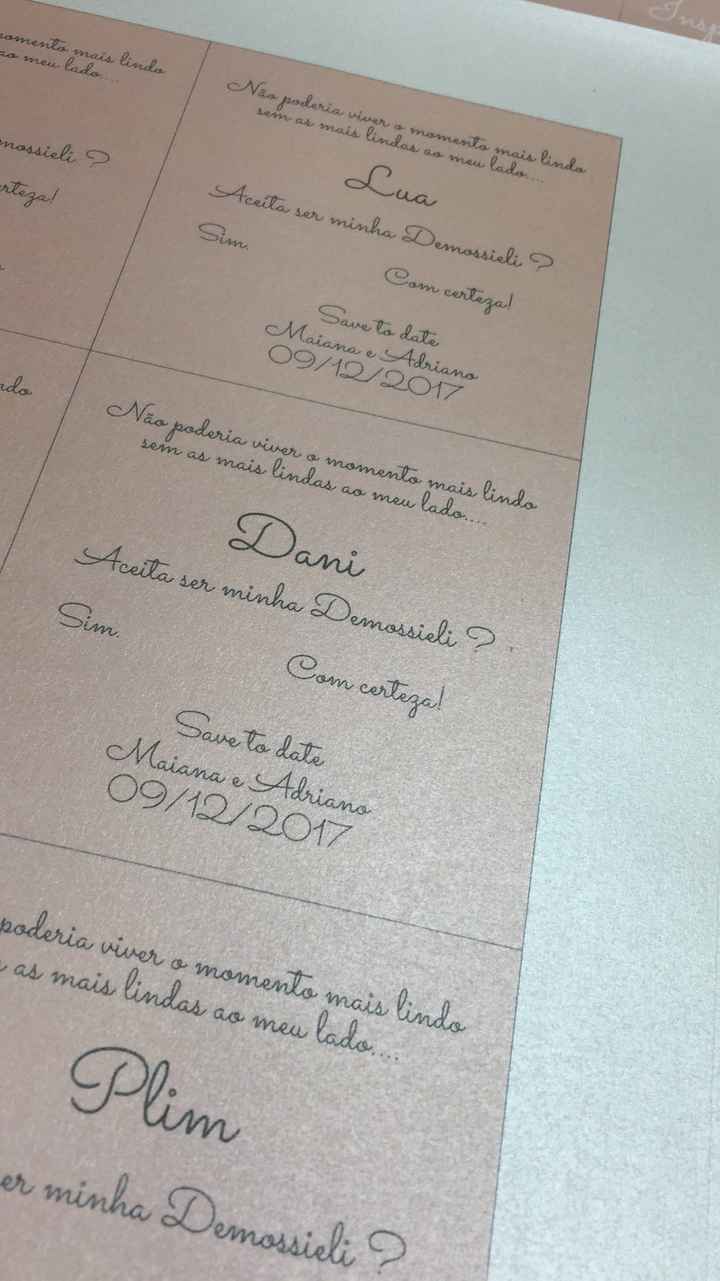 Insp
omento mais lindo
ao meu lado....
mossieli ?
erteza!
Não poderia viver o momento mais lindo
sem as mais lindas ao meu lado....
Lua
Aceita ser minha Demossieli ?
Sim.
Com certeza!
Save to date
Maiana e Adriano
09/12/2017
ndo
Não poderia viver o momento mais lindo
sem as mais lindas ao meu lado....
Dani
Aceita ser minha Demossieli ?
Sim.
Com certeza!
Save to date
Maiana e Adriano
09/12/2017
poderia viver o momento mais lindo
as mais lindas ao meu lado....
Plim
er minha Demossieli ?